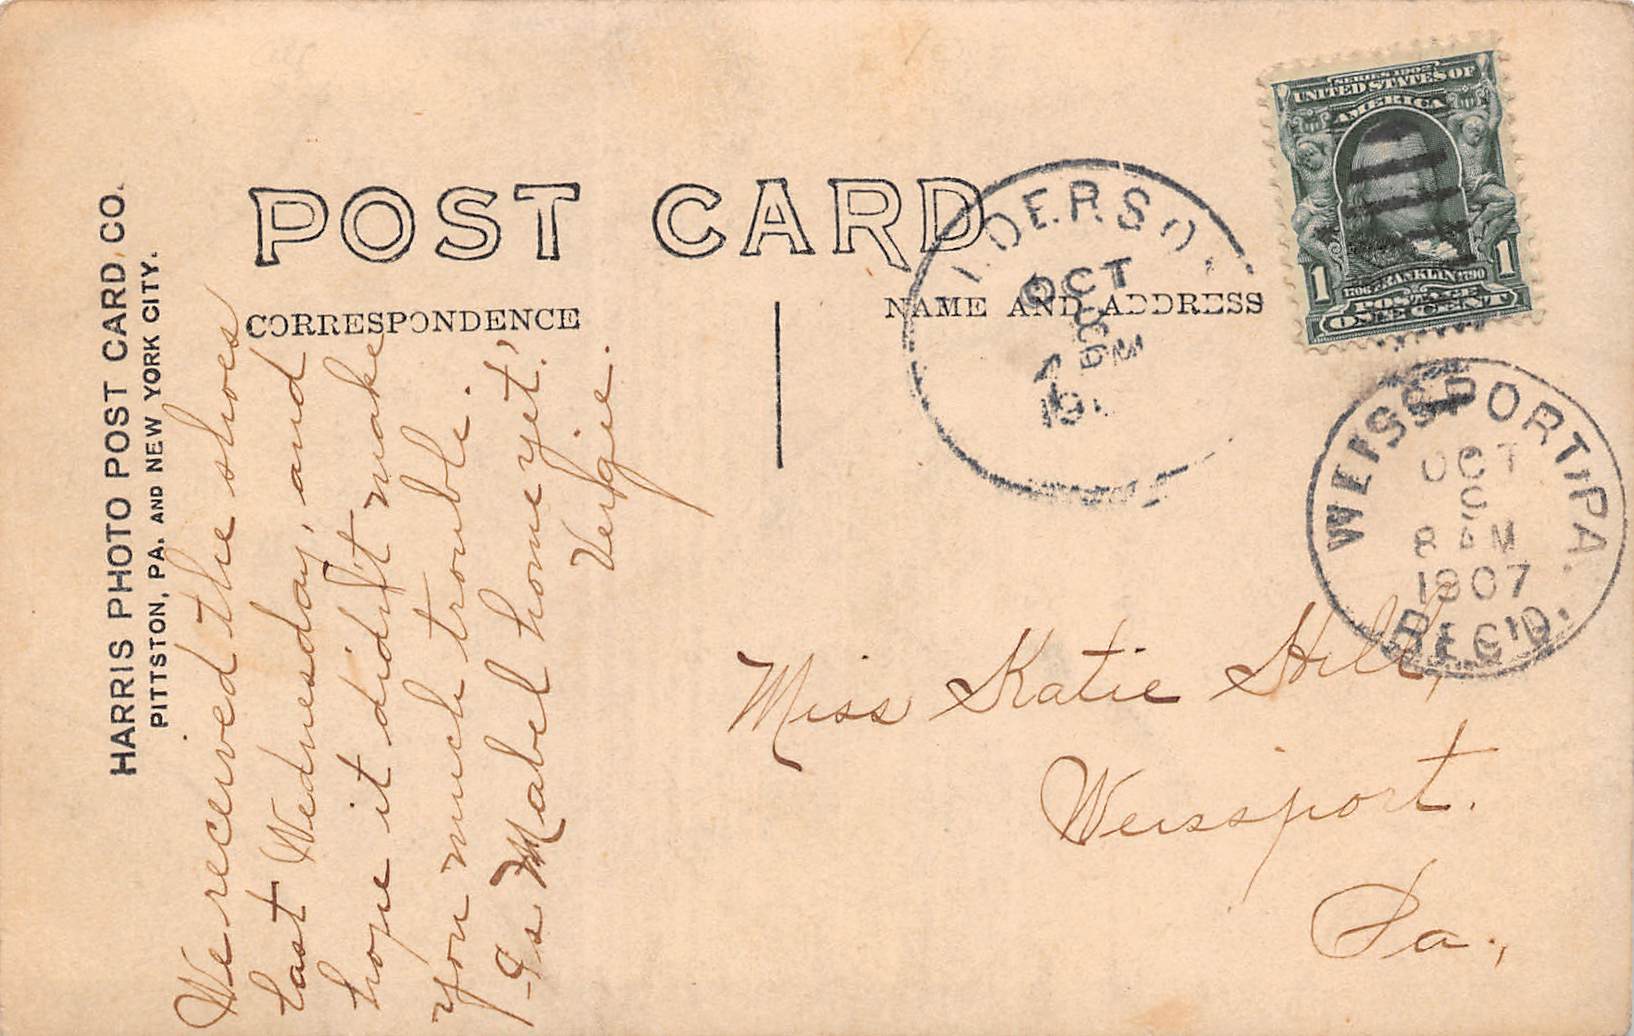 HARRIS PHOTO POST CARD CO.
PITTSTON, PA. AND NEW YORK CITY.
POST CARD
CORRESPONDENCE
NAME AND ADDRESS
We received the shoes
last Wednesday, and
hope it didn't make
you much trouble.
-Is Mabel home yet?
Vergie.
SERIES 1902
UNITED STATES OF
AMERICA
1706 FRANKLIN 1790
1 1
POSTAGE
ONE CENT
OCT
WEISSPORT, PA.
OCT
8 AM
1907
REC'D.
Miss Katie Hill,
Weissport.
Pa.,